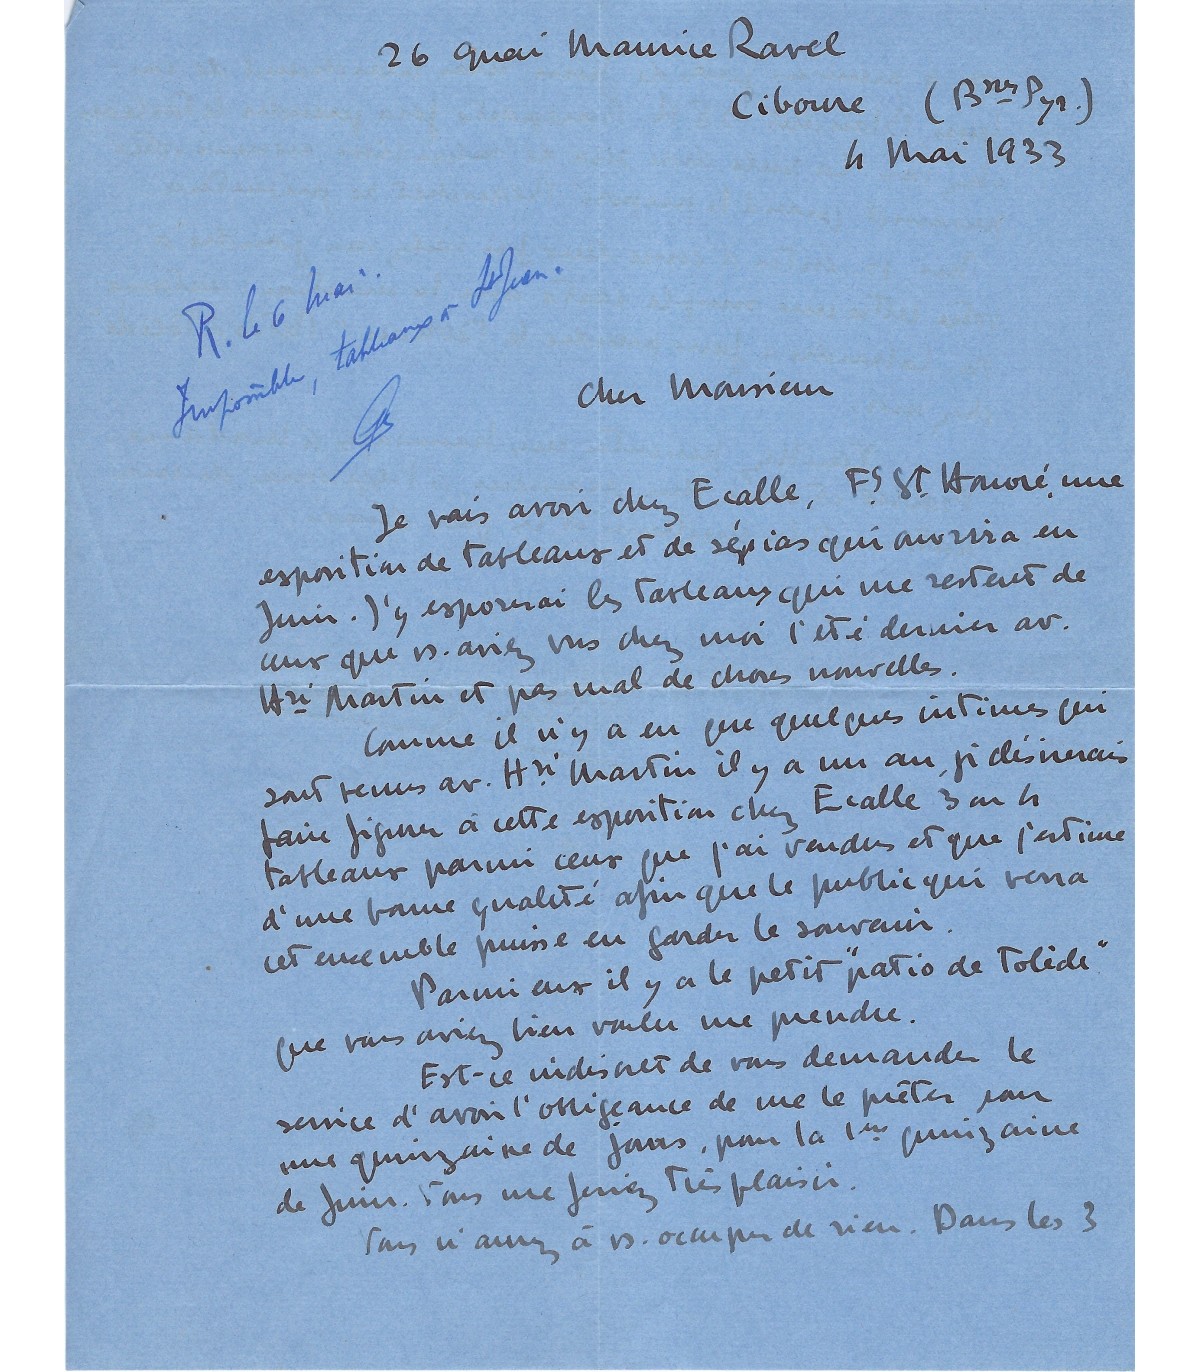 26 Quai Maurice Ravel
Ciboure (Bses Pyr.)
4 Mai 1933
R. le 6 Mai.
Impossible, tableaux à St Jean.
Cher Monsieur
Je vais avoir chez Ecalle, Fg St Honoré, une
exposition de tableaux et de sépias qui ouvrira en
Juin. J'y exposerai les tableaux qui me restent de
ceux que vs. aviez vus chez moi l'été dernier av.
Hri Martin et pas mal de choses nouvelles.
Comme il n'y a eu que quelques intimes qui
sont venus av. Hri Martin il y a un an, je désirerais
faire figurer à cette exposition chez Ecalle 3 ou 4
tableaux parmi ceux que j'ai vendus et que j'estime
d'une bonne qualité afin que le public qui verra
cet ensemble puisse en garder le souvenir.
Parmi eux il y a le petit "patio de Tolède"
que vous aviez bien voulu me prendre.
Est-ce indiscret de vous demander le
service d'avoir l'obligeance de me le prêter pour
une quinzaine de jours, pour la 1ère quinzaine
de Juin. Vous me feriez très plaisir.
Vous n'aurez à vs. occuper de rien. Dans les 3